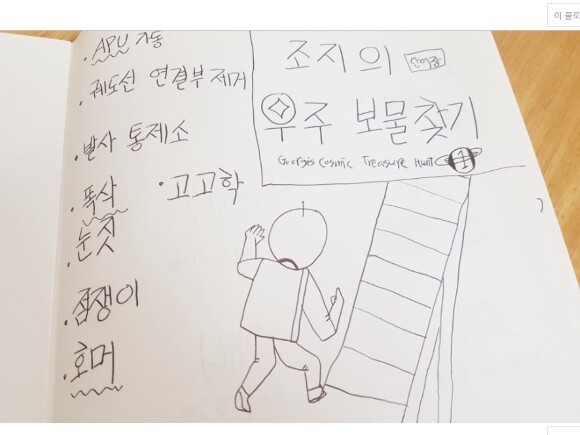 이 블로
· APU 가동
· 궤도선 연결부 제거
· 발사 통제소
· 폭삭
· 고고학
· 눈짓
· 점쟁이
· 호머
조지의 단어장
우주 보물찾기
George's Cosmic Treasure Hunt 1